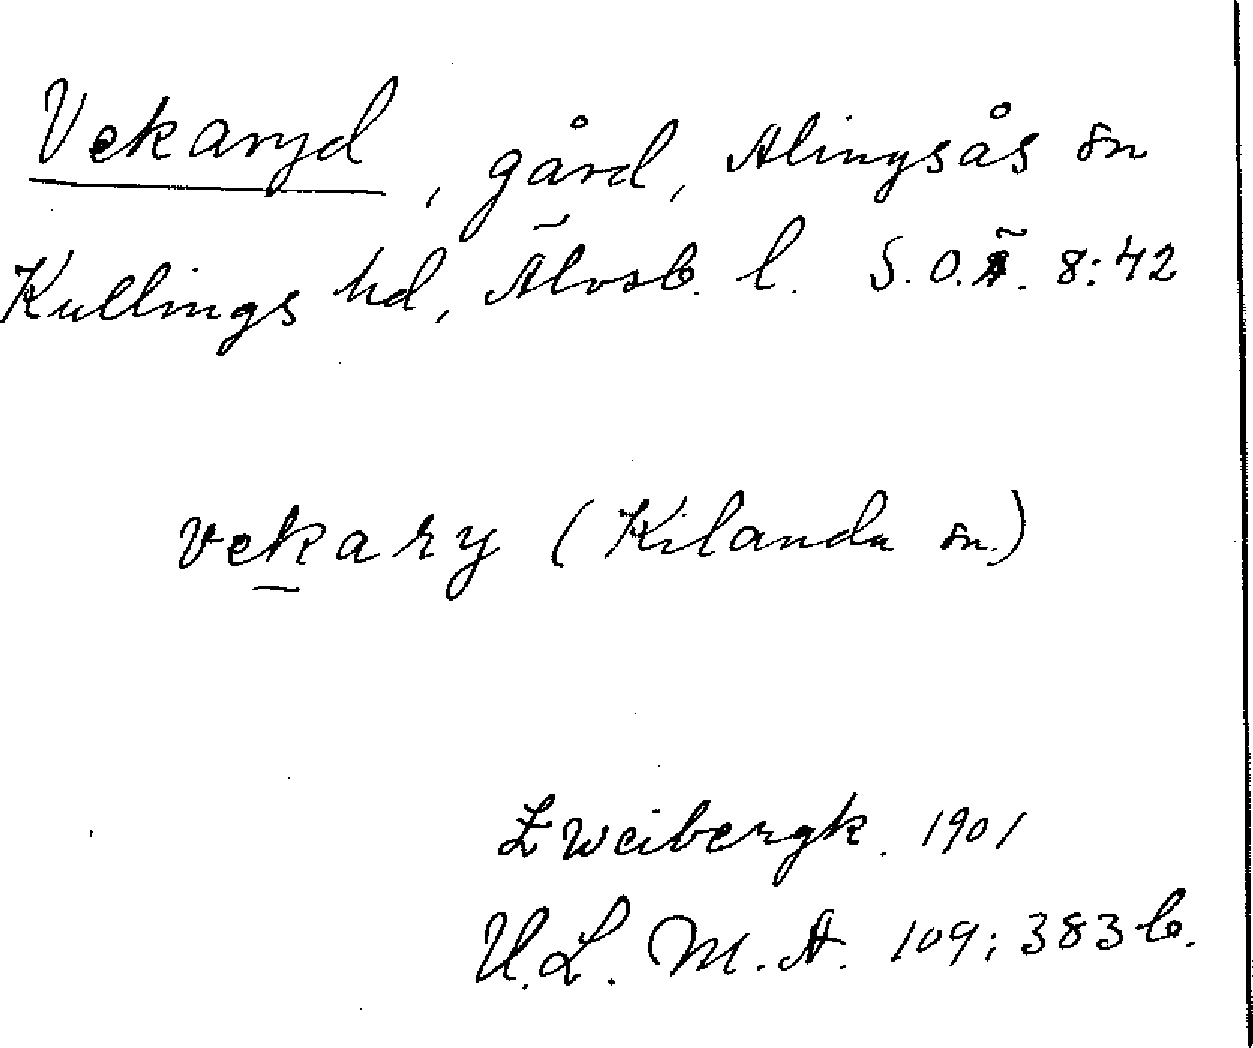 Vekaryd, gård, Alingsås sn
Kullings hd, Älvsb. l. S.O.Ä. 8:42
vekary (Kilanda sn.)
Zweibergk. 1901
U.L.M.A. 109:383 b.